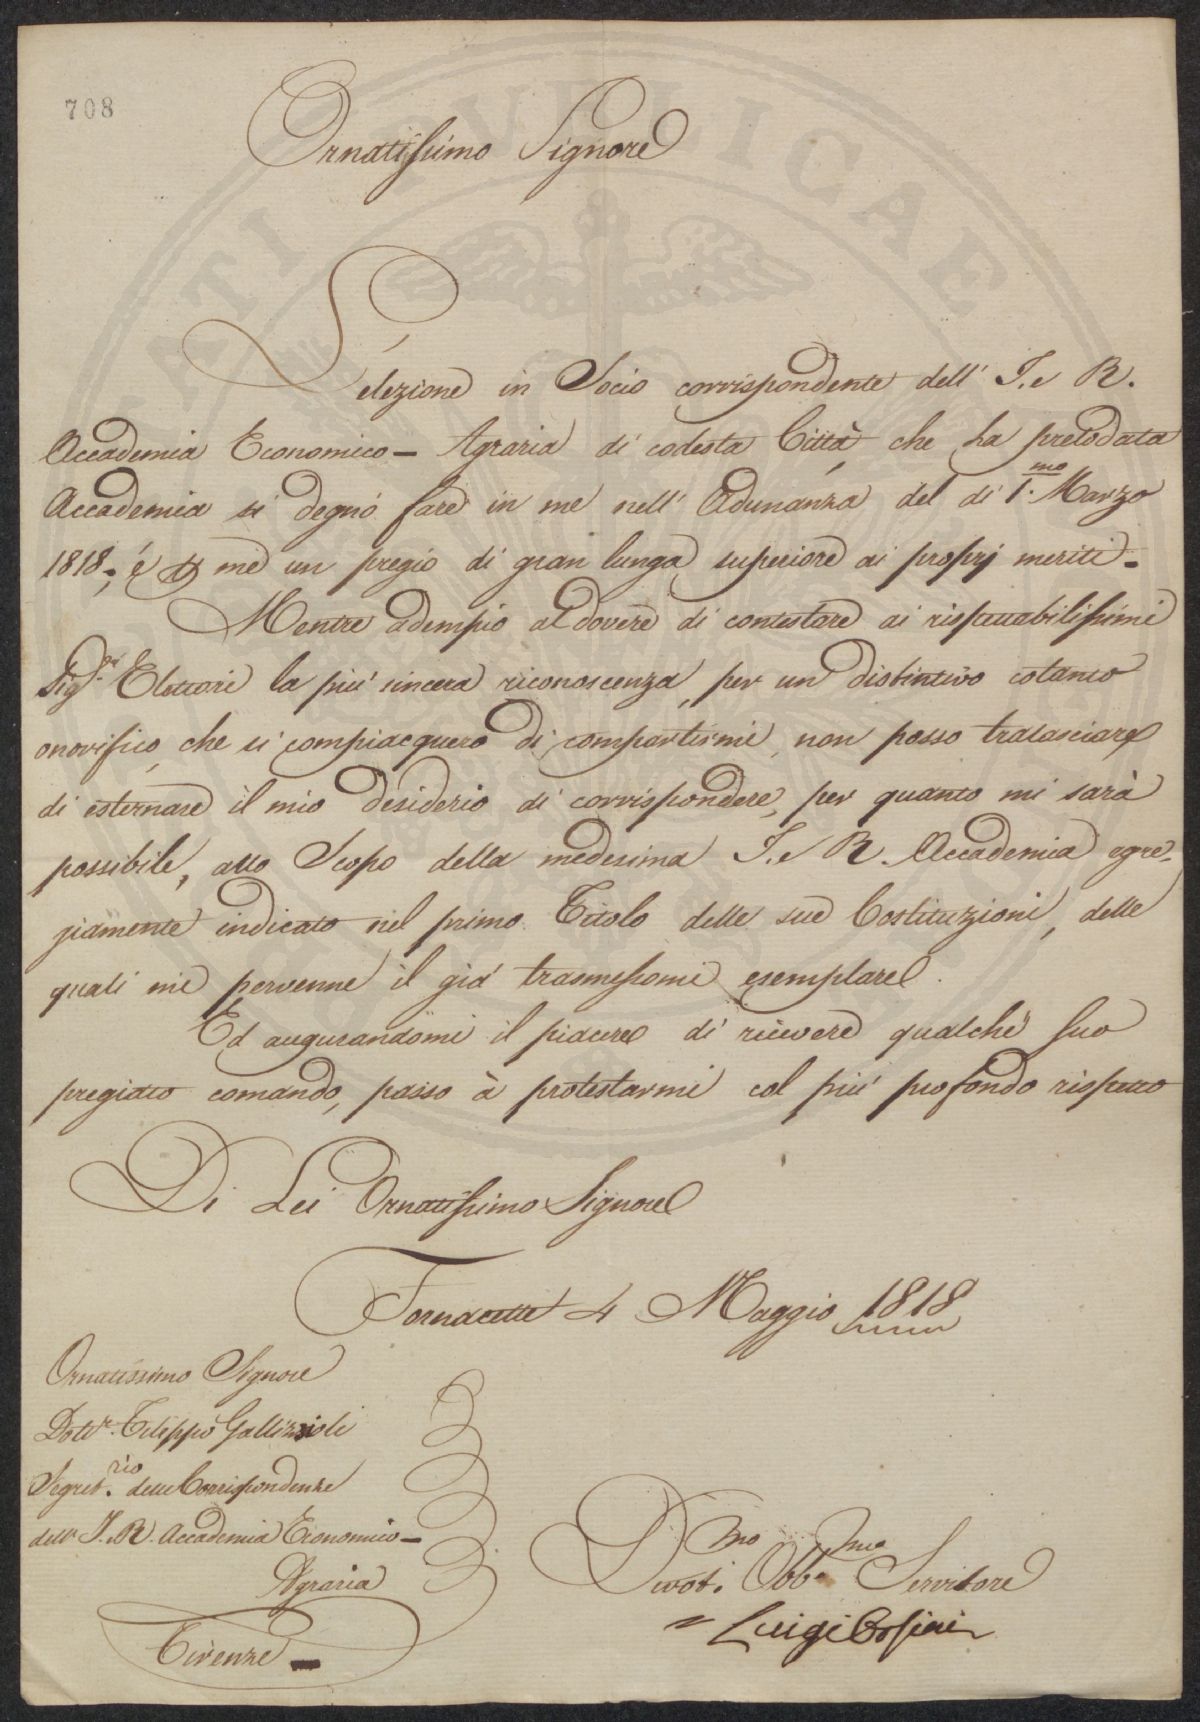 708
Ornatissimo Signore
L'
elezione in Socio corrispondente dell' I. e R.
Accademia Economico - Agraria di codesta Città, che la prelodata
Accademia si degnó fare in me nell' Adunanza del di 1.mo Marzo
1818; é p me un pregio di gran lunga superiore ai proprj meriti.
Mentre adempio al dovere di contestare ai rispettabilissimi
Sig.ri Elettori la piú sincera riconoscenza, per un distintivo cotanto
onorifico, che si compiacquero di compartirmi, non posso tralasciare
di esternare il mio desiderio di corrispondere, per quanto mi sarà
possibile, allo Scopo della medesima I. e R. Accademia egre-
giamente indicato nel primo Titolo delle sue Costituzioni, delle
quali mi pervenne il giá trasmessomi esemplare.
Ed augurandomi il piacere di ricevere qualche suo
pregiato comando, passo à protestarmi col piú profondo rispetto
Di Lei Ornatissimo Signore
Fornacette 4 Maggio 1818
Ornatissimo Signore
Dott.r Filippo Gallizioli
Segret.rio delle Corrispondenze
dell' I. e R. Accademia Economico -
Agraria
Firenze
Devot.mo Obb.mo Servitore
Luigi